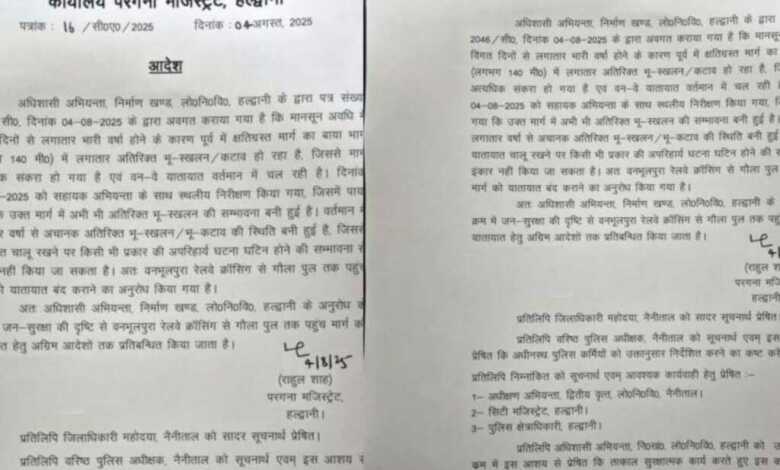 कार्यालय परगना मजिस्ट्रेट, हल्द्वानी
पत्रांक : 16 /सी०ए०/2025 दिनांक : 04-अगस्त, 2025
आदेश
अधिशासी अभियन्ता, निर्माण खण्ड, लो०नि०वि०, हल्द्वानी के द्वारा पत्र संख्य
सी०, दिनांक 04-08-2025 के द्वारा अवगत कराया गया है कि मानसून अवधि में
दिनों से लगातार भारी वर्षा होने के कारण पूर्व में क्षतिग्रस्त मार्ग का बाया भाग
140 मी०) में लगातार अतिरिक्त भू-स्खलन/कटाव हो रहा है, जिससे मार्ग
क संकरा हो गया है एवं वन-वे यातायात वर्तमान में चल रही है। दिनांक
-2025 को सहायक अभियन्ता के साथ स्थलीय निरीक्षण किया गया, जिसमें पाय
उक्त मार्ग में अभी भी अतिरिक्त भू-स्खलन की सम्भावना बनी हुई है। वर्तमान में
र वर्षा से अचानक अतिरिक्त भू-स्खलन/भू-कटाव की स्थिति बनी हुई है, जिससे
त चालू रखने पर किसी भी प्रकार की अपरिहार्य घटना घटित होने की सम्भावना से
नहीं किया जा सकता है। अतः वनभूलपुरा रेलवे क्रॉसिंग से गौला पुल तक पहुंच
यातायात बंद कराने का अनुरोध किया गया है।
अतः अधिशासी अभियन्ता, निर्माण खण्ड, लो०नि०वि०, हल्द्वानी के अनुरोध के
जन-सुरक्षा की दृष्टि से वनभूलपुरा रेलवे क्रॉसिंग से गौला पुल तक पहुंच मार्ग को
त हेतु अग्रिम आदेशों तक प्रतिबन्धित किया जाता है।
4/8/25
(राहुल शाह)
परगना मजिस्ट्रेट,
हल्द्वानी।
प्रतिलिपि जिलाधिकारी महोदया, नैनीताल को सादर सूचनार्थ प्रेषित।
प्रतिलिपि वरिष्ठ पुलिस अधीक्षक, नैनीताल को सूचनार्थ एवम् इस आशय से
अधिशासी अभियन्ता, निर्माण खण्ड, लो०नि०वि०, हल्द्वानी के द्वारा
2046/सी०, दिनांक 04-08-2025 के द्वारा अवगत कराया गया है कि मानसून
विगत दिनों से लगातार भारी वर्षा होने के कारण पूर्व में क्षतिग्रस्त मार्ग का
(लगभग 140 मी०) में लगातार अतिरिक्त भू-स्खलन/कटाव हो रहा है, जि
अत्यधिक संकरा हो गया है एवं वन-वे यातायात वर्तमान में चल रही है
04-08-2025 को सहायक अभियन्ता के साथ स्थलीय निरीक्षण किया गया,
गया कि उक्त मार्ग में अभी भी अतिरिक्त भू-स्खलन की सम्भावना बनी हुई है।
लगातार वर्षा से अचानक अतिरिक्त भू-स्खलन/भू-कटाव की स्थिति बनी हुई
यातायात चालू रखने पर किसी भी प्रकार की अपरिहार्य घटना घटित होने की स
इंकार नहीं किया जा सकता है। अतः वनभूलपुरा रेलवे क्रॉसिंग से गौला पुल
मार्ग को यातायात बंद कराने का अनुरोध किया गया है।
अतः अधिशासी अभियन्ता, निर्माण खण्ड, लो०नि०वि०, हल्द्वानी के
क्रम में जन-सुरक्षा की दृष्टि से वनभूलपुरा रेलवे क्रॉसिंग से गौला पुल तक पहुं
यातायात हेतु अग्रिम आदेशों तक प्रतिबन्धित किया जाता है।
(राहुल शाह
परगना मजि
हल्द्वानी
प्रतिलिपि जिलाधिकारी महोदया, नैनीताल को सादर सूचनार्थ प्रेषित।
प्रतिलिपि वरिष्ठ पुलिस अधीक्षक, नैनीताल को सूचनार्थ एवम् इस
प्रेषित कि अधीनस्थ पुलिस कर्मियों को उक्तानुसार निर्देशित करने का कष्ट करें
प्रतिलिपि निम्नांकित को सूचनार्थ एवम् आवश्यक कार्यवाही हेतु प्रेषित :-
1- अधीक्षण अभियन्ता, द्वितीय वृत्त, लो०नि०वि०, नैनीताल।
2- सिटी मजिस्ट्रेट, हल्द्वानी।
3- पुलिस क्षेत्राधिकारी, हल्द्वानी।
प्रतिलिपि अधिशासी अभियन्ता, नि०खं०, लो०नि०वि०, हल्द्वानी को
क्रम में इस आशय से प्रेषित कि तत्काल सुरक्षात्मक कार्य करते हुए इस